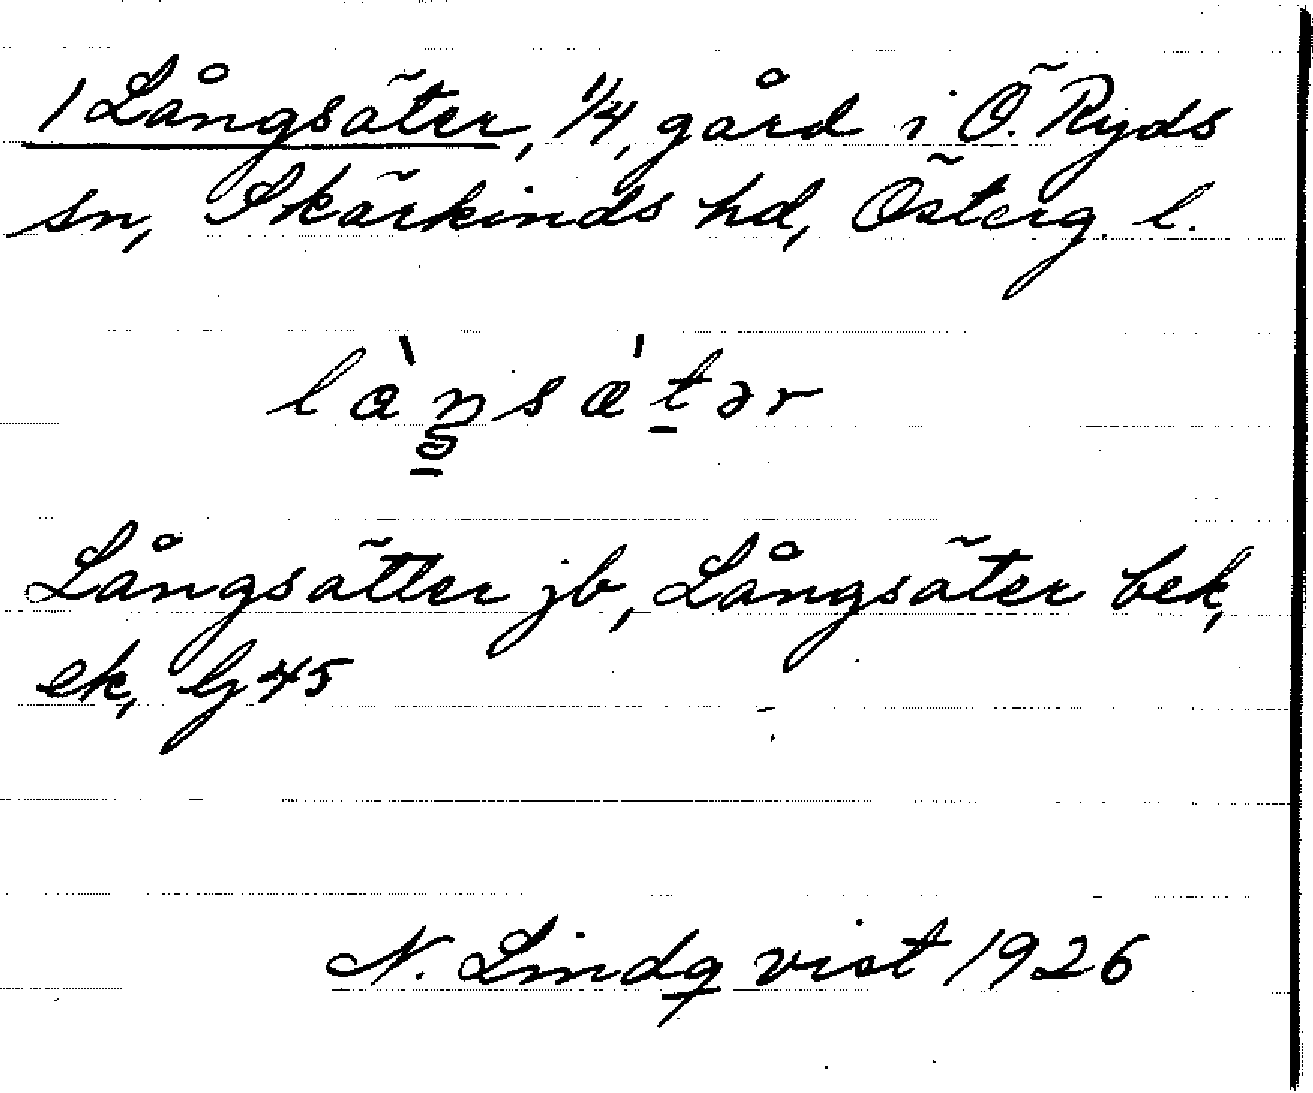 1 Långsäter, 1/4, gård i Ö. Ryds
sn, Skärkinds hd, Österg. l.
Långsätter jb, Långsäter bek,
ek, G 45
N. Lindqvist 1926